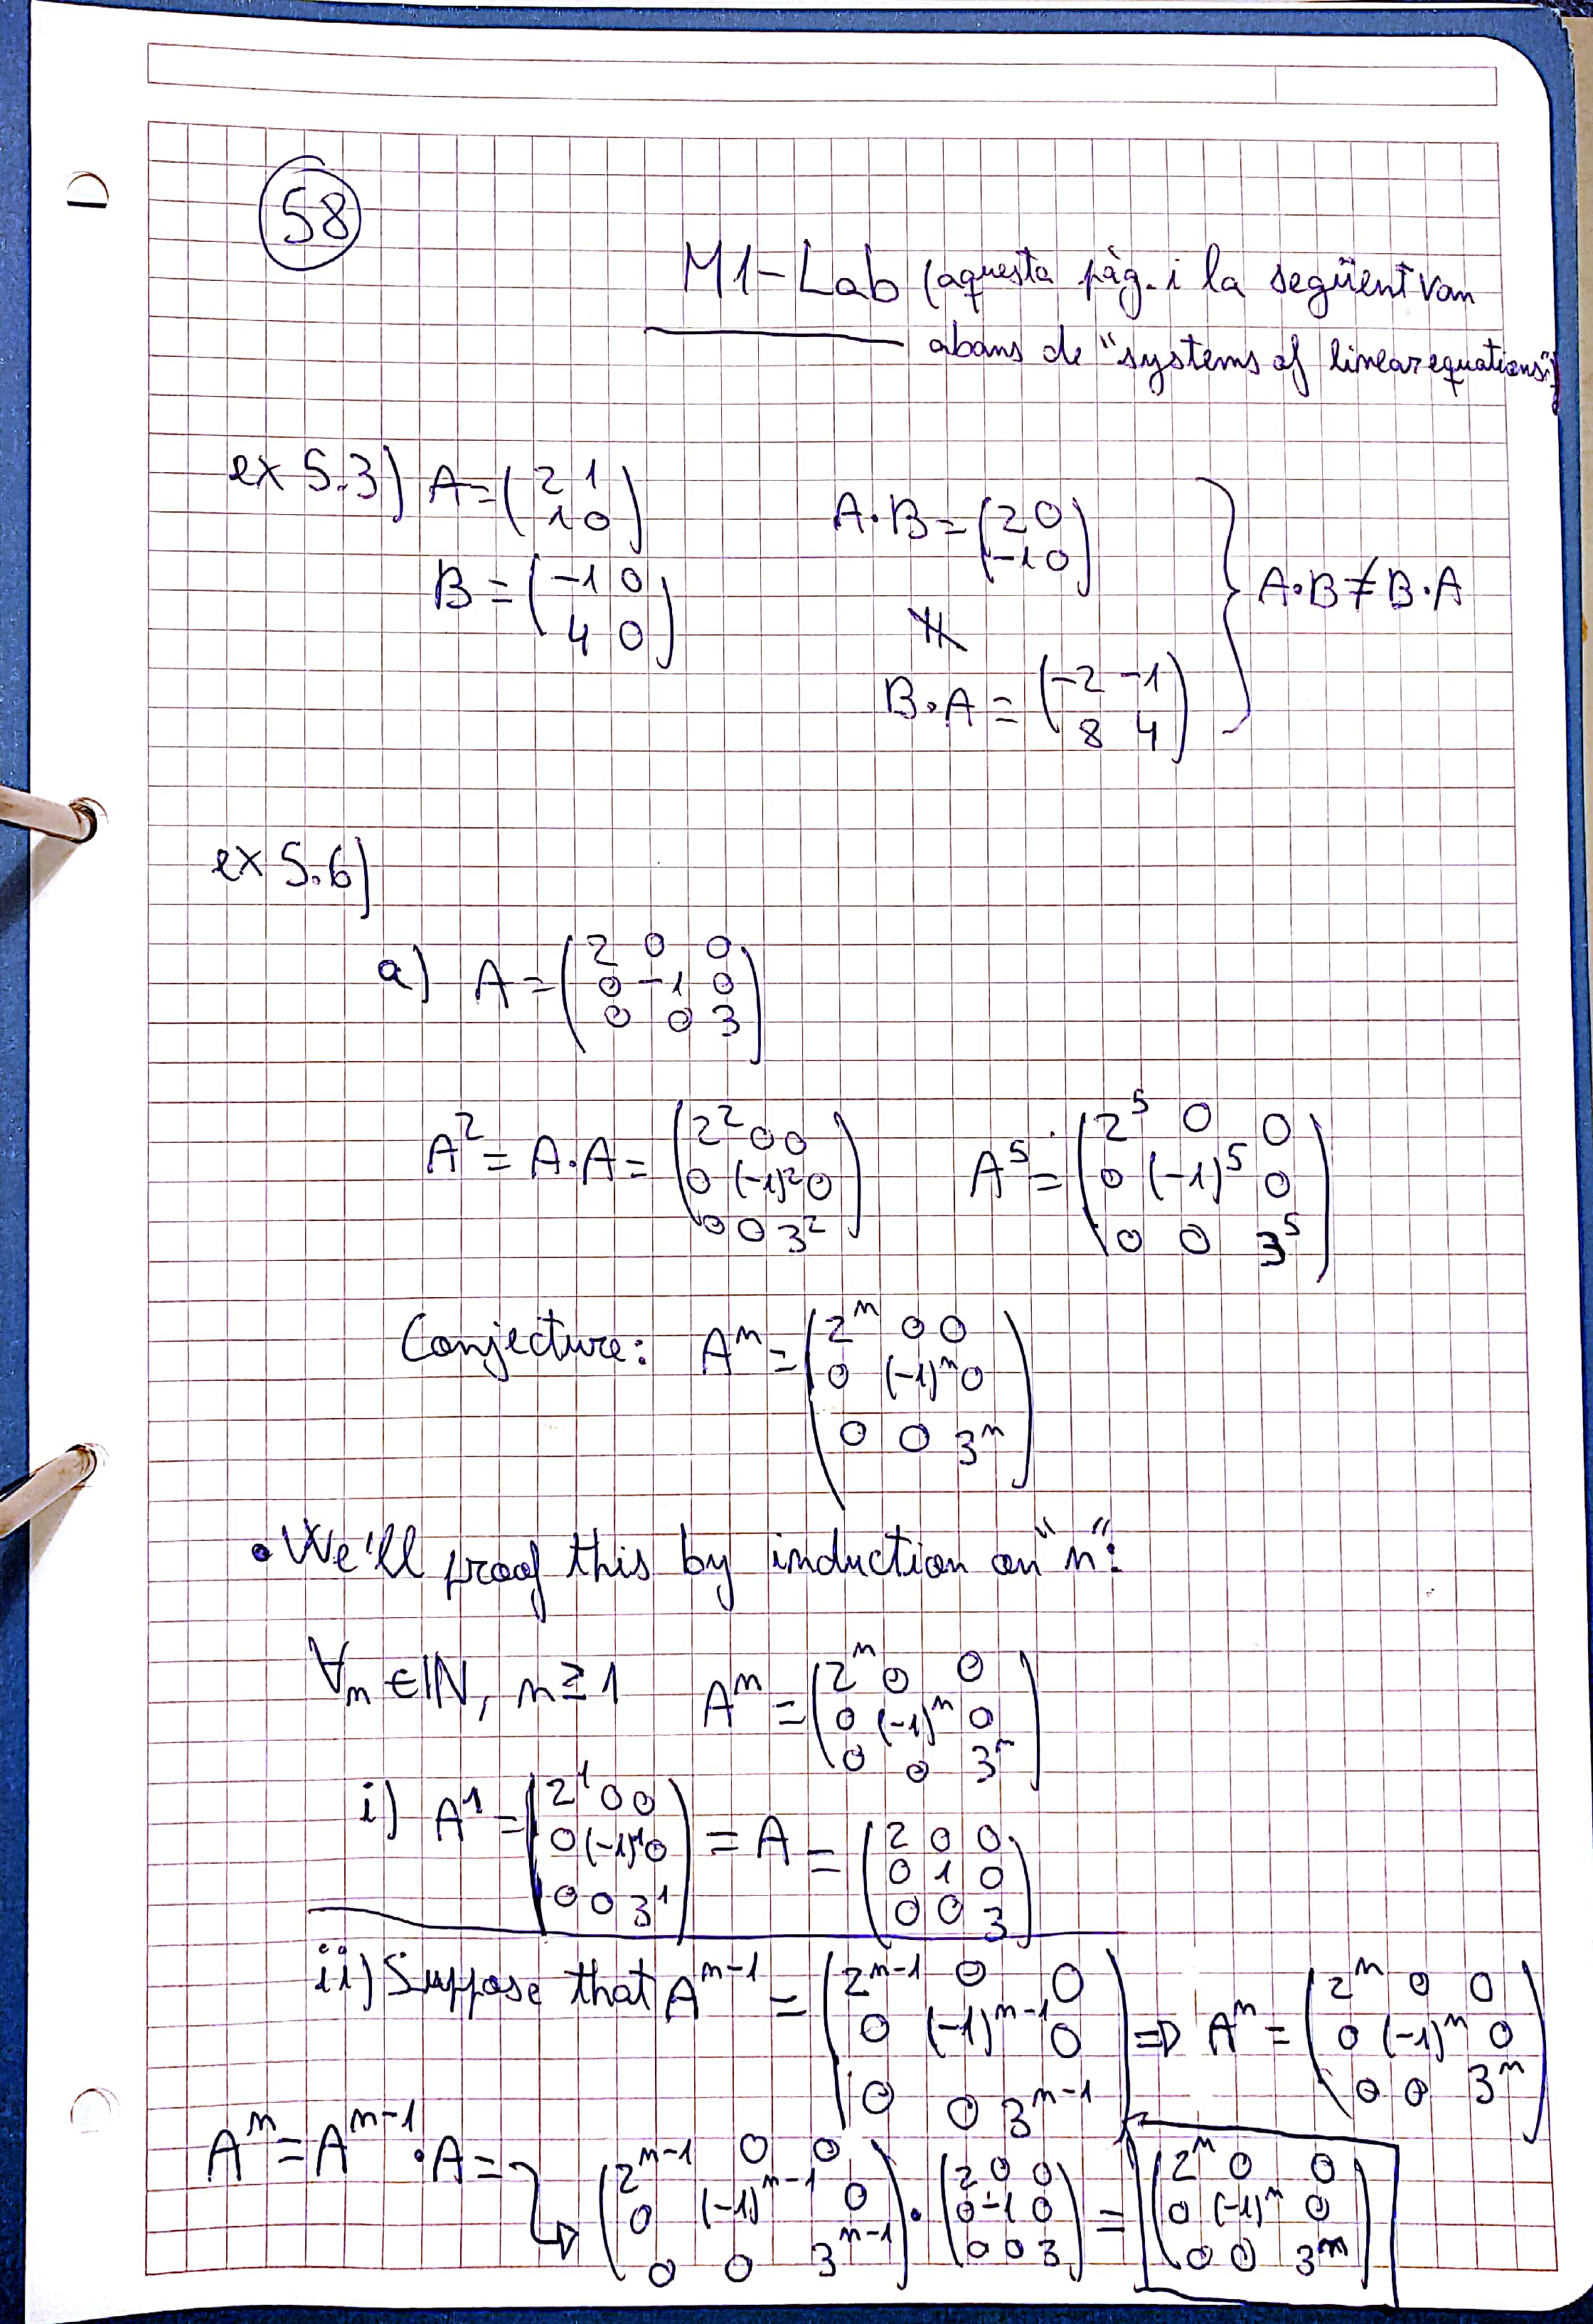 58
M1-Lab (aquesta pàg. i la següent van
abans de "systems of linear equations")
ex 5.3) A = (2 1
1 0)
B = (-1 0
4 0)
A·B = (2 0
-1 0)
≠
B·A = (-2 -1
8 4)
A·B ≠ B·A
ex 5.6)
a) A = (2 0 0
0 -1 0
0 0 3)
A² = A·A = (2² 0 0
0 (-1)² 0
0 0 3²)
A⁵ = (2⁵ 0 0
0 (-1)⁵ 0
0 0 3⁵)
Conjecture: Aⁿ = (2ⁿ 0 0
0 (-1)ⁿ 0
0 0 3ⁿ)
• We'll proof this by induction on "n":
∀n ∈ ℕ, n ≥ 1 Aⁿ = (2ⁿ 0 0
0 (-1)ⁿ 0
0 0 3ⁿ)
i) A¹ = (2¹ 0 0
0 (-1)¹ 0
0 0 3¹) = A = (2 0 0
0 1 0
0 0 3)
ii) Suppose that Aⁿ⁻¹ = (2ⁿ⁻¹ 0 0
0 (-1)ⁿ⁻¹ 0
0 0 3ⁿ⁻¹) => Aⁿ = (2ⁿ 0 0
0 (-1)ⁿ 0
0 0 3ⁿ)
Aⁿ = Aⁿ⁻¹·A = (2ⁿ⁻¹ 0 0
0 (-1)ⁿ⁻¹ 0
0 0 3ⁿ⁻¹) · (2 0 0
0 -1 0
0 0 3) = (2ⁿ 0 0
0 (-1)ⁿ 0
0 0 3ⁿ)